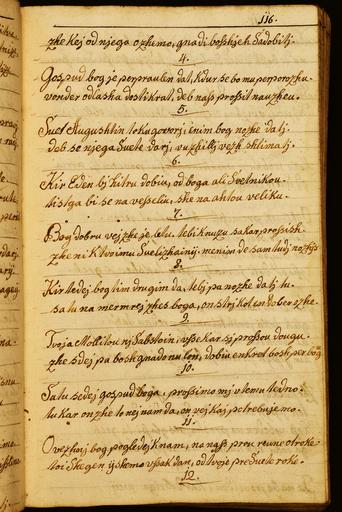 116.
zhe kej od njega ozhemo, gnadi bosshjeh sadobiti.
4.
Gospud bog je perpraulen dat, kdur se bo mu perporozhu.
vonder odlasha dostikrat, deb nass prossil nauzheu.
5.
Suet Augushtin toku govori, enim bog nozhe dati.
deb se njega suete dari, vuzhilli vezh shtimati.
6.
Kir Eden bi hitru dobiu, od boga ali Svetnikou.
tistga bi se na vesseliu, ske na ahtou veliku.
7.
Bog dobru vej zhe je letu, tebi knuzu sa kar prossish.
zhe ni K tvoimu Suelizhainu, menim de sam tudi nozhesh
8.
Kir tedej bog tim drugim da, telj pa nozhe dati tu.
satu na mermrej zhes boga, on stri kol en dober ozhe.
9.
Tvoja Molitou ni sabstoin, vsse kar si prossou dougu.
zhe sdej pa bosh gnado nu lon, dobiu enkrat bosh per bog
10.
Satu sedej gospud boga, prossimo mi vlemu tedno.
tu kar on zhe to nej nam da, on vej kaj potrebujemo.
11.
O vezhni bog pogledej knam, na nass preu reune otroke
toi shegen ijshemo vssak dan, od tvoje presuete roke.
12.